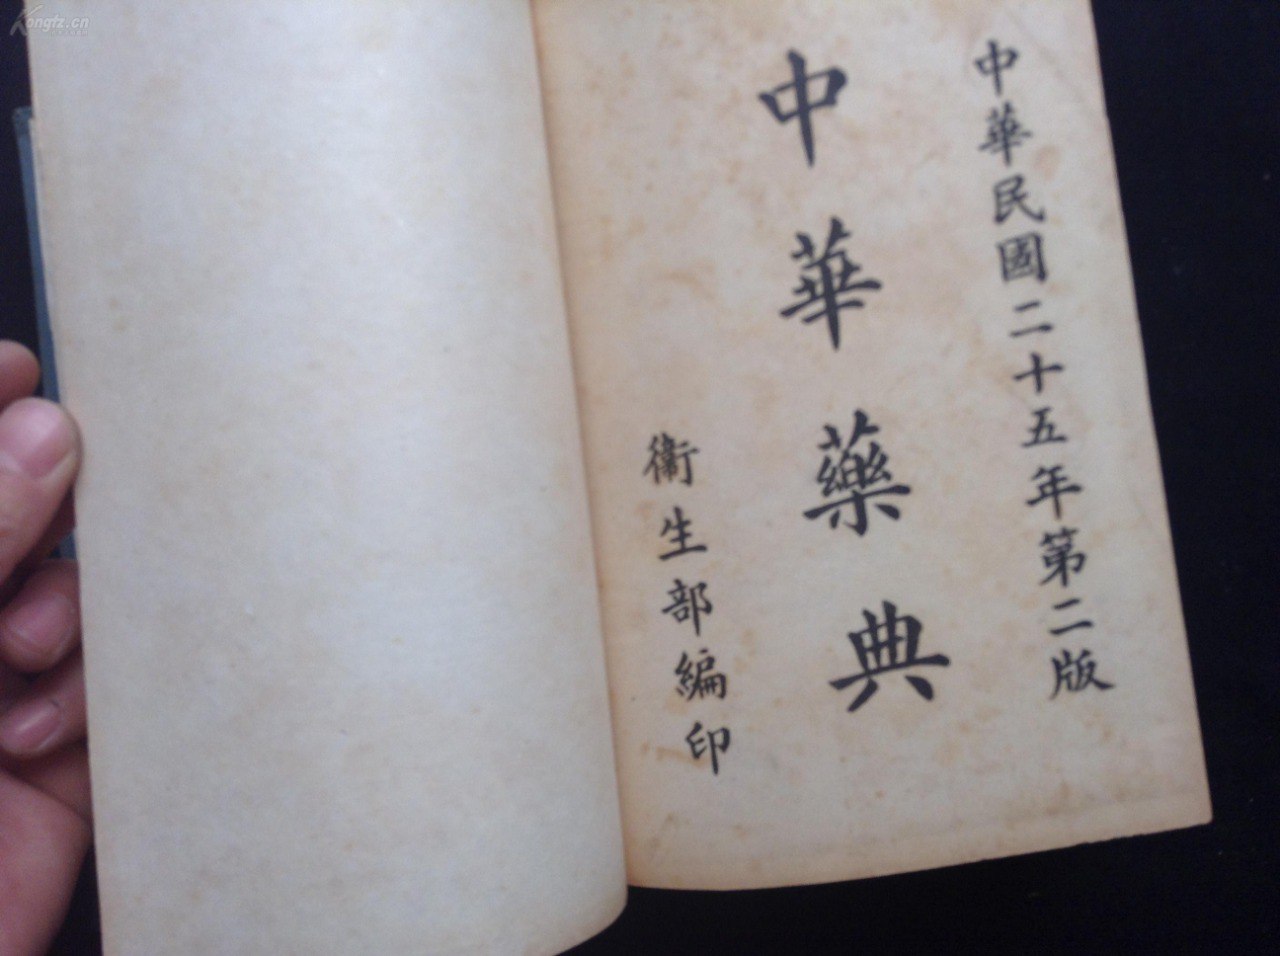 中華民國二十五年第二版
中華藥典
衞生部編印
Kongfz.cn